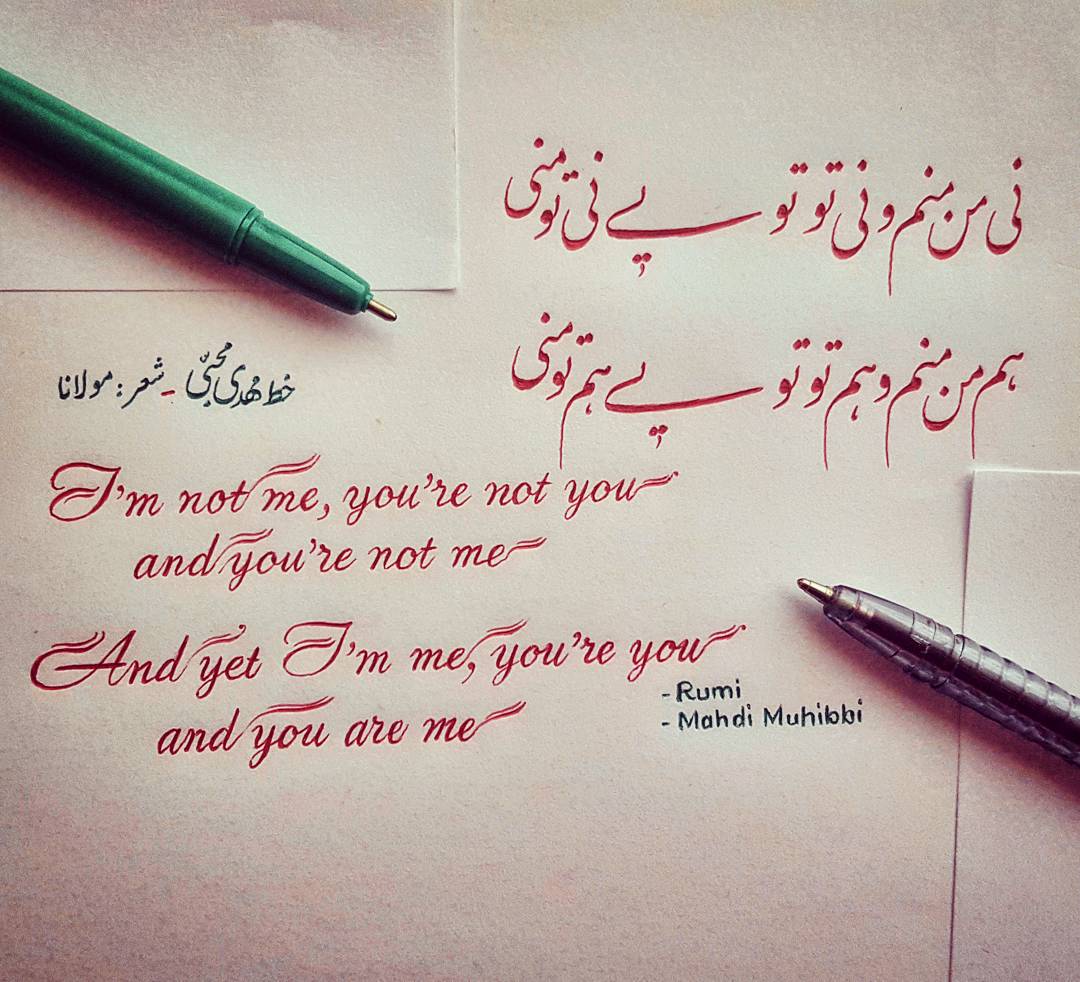 نی من منم و نی تو تویی نی تو منی
هم من منم و هم تو تویی هم تو منی
خط مهدی محبّی - شعر : مولانا
I'm not me, you're not you
and you're not me
And yet I'm me, you're you
and you are me
- Rumi
- Mahdi Muhibbi